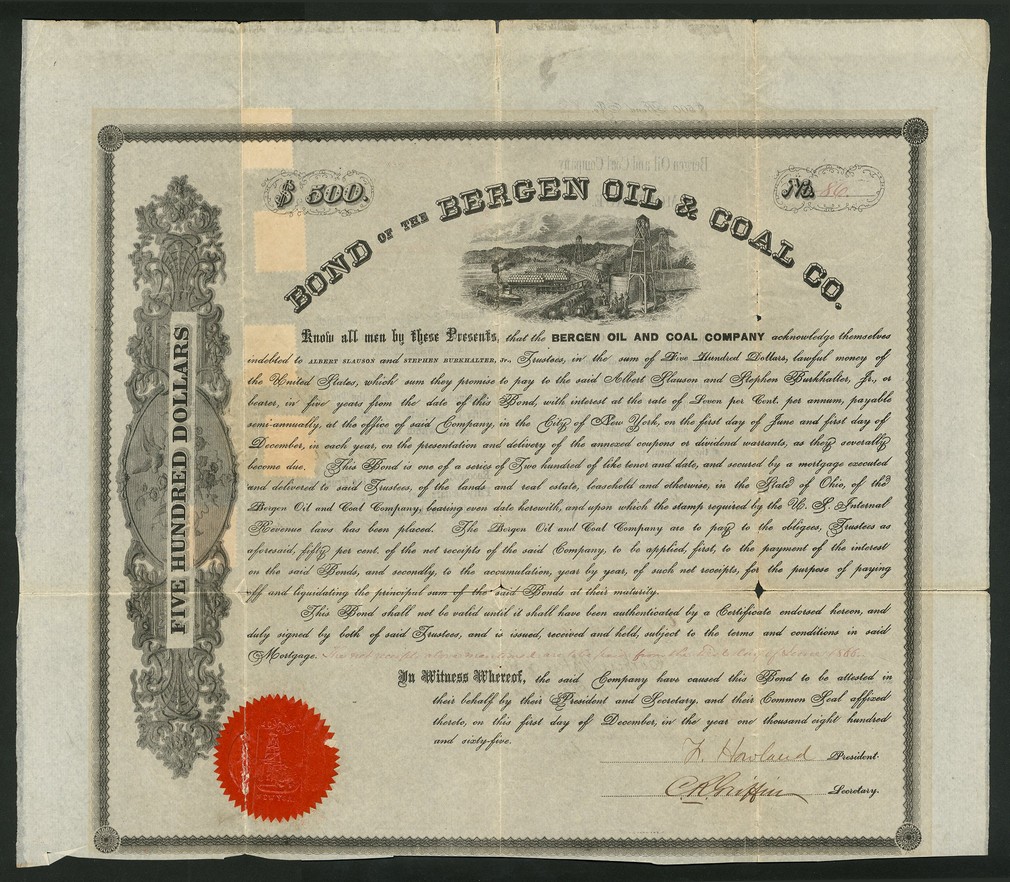 $ 500.
No.
BOND OF THE BERGEN OIL & COAL CO.
FIVE HUNDRED DOLLARS
Know all men by these Presents, that the BERGEN OIL AND COAL COMPANY acknowledge themselves
indebted to ALBERT SLAUSON and STEPHEN BURKHALTER, Jr., Trustees, in the sum of Five Hundred Dollars, lawful money of
the United States, which sum they promise to pay to the said Albert Slauson and Stephen Burkhalter, Jr., or
bearer, in five years from the date of this Bond, with interest at the rate of Seven per Cent. per annum, payable
semi-annually, at the office of said Company, in the City of New York, on the first day of June and first day of
December, in each year, on the presentation and delivery of the annexed coupons or dividend warrants, as they severally
become due. This Bond is one of a series of Two hundred of like tenor and date, and secured by a mortgage executed
and delivered to said Trustees, of the lands and real estate, leasehold and otherwise, in the State of Ohio, of the
Bergen Oil and Coal Company, bearing even date herewith, and upon which the stamp required by the U. S. Internal
Revenue laws has been placed. The Bergen Oil and Coal Company are to pay to the obligees, Trustees as
aforesaid, fifty per cent. of the net receipts of the said Company, to be applied, first, to the payment of the interest
on the said Bonds, and secondly, to the accumulation, year by year, of such net receipts, for the purpose of paying
off and liquidating the principal sum of the said Bonds at their maturity.
This Bond shall not be valid until it shall have been authenticated by a Certificate endorsed hereon, and
duly signed by both of said Trustees, and is issued, received and held, subject to the terms and conditions in said
Mortgage. from the first day of June 1866.
In Witness Whereof, the said Company have caused this Bond to be attested in
their behalf by their President and Secretary, and their Common Seal affixed
thereto, on this first day of December, in the year one thousand eight hundred
and sixty-five.
Howland President.
C. R. Griffin Secretary.